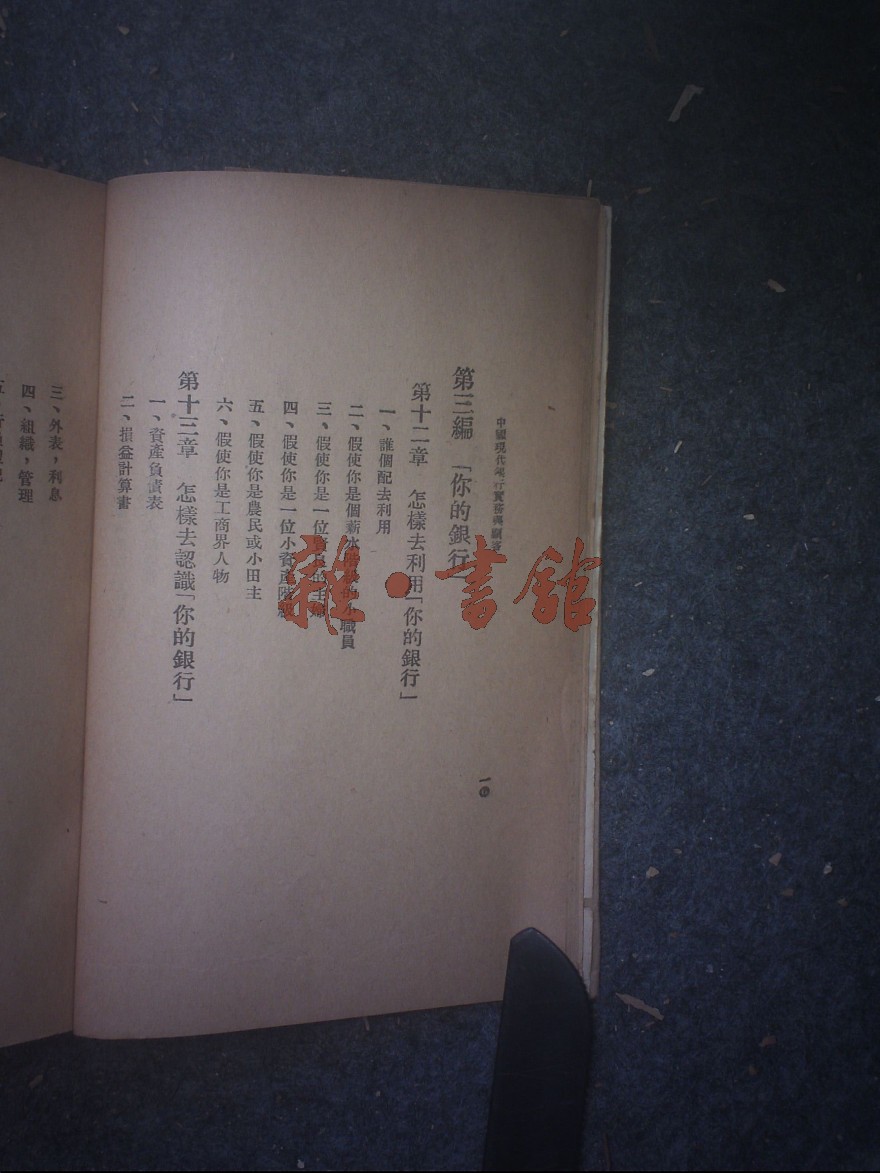 中國現代銀行實務與顧客
一〇
第三編　「你的銀行」
第十二章　怎樣去利用「你的銀行」
一、誰個配去利用
二、假使你是個薪水階級的職員
三、假使你是一位賢良的主婦
四、假使你是一位小資產階級
五、假使你是農民或小田主
六、假使你是工商界人物
第十三章　怎樣去認識「你的銀行」
一、資產負債表
二、損益計算書
三、外表，利息
四、組織，管理
雜·書館